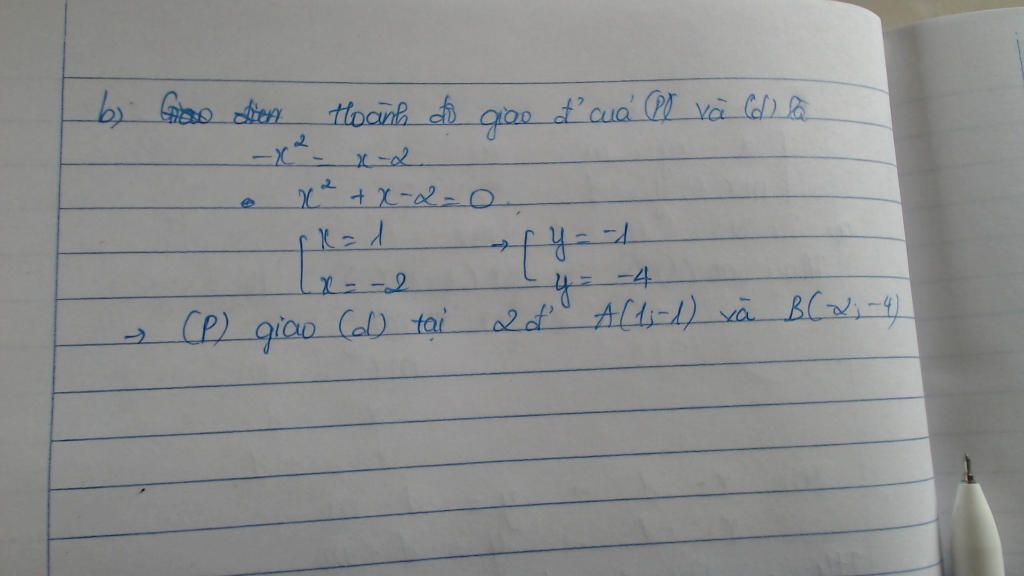 b) Hoành độ giao đ' của (P) và (d) là
-x² = x-2
x² + x - 2 = 0
[ x = 1 → [ y = -1
x = -2 y = -4
→ (P) giao (d) tại 2 đ' A(1;-1) và B(-2;-4)